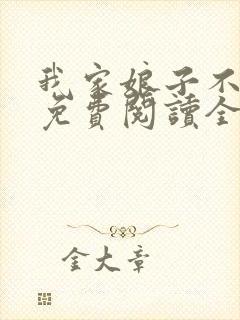 我家娘子不
免費閱讀全
金大章